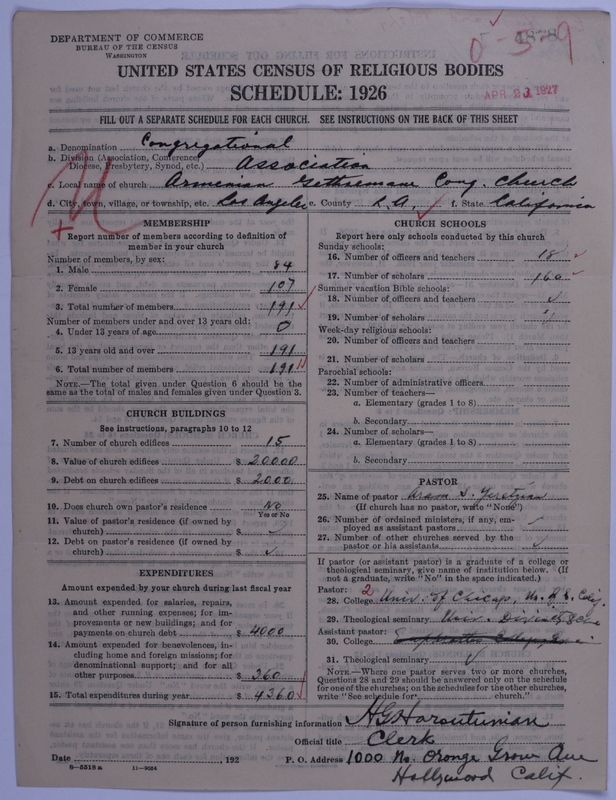 DEPARTMENT OF COMMERCE
BUREAU OF THE CENSUS
WASHINGTON
1878
0-5 9
APR 23 1927
UNITED STATES CENSUS OF RELIGIOUS BODIES
SCHEDULE: 1926
FILL OUT A SEPARATE SCHEDULE FOR EACH CHURCH. SEE INSTRUCTIONS ON THE BACK OF THIS SHEET
a. Denomination Congregational
b. Division (Association, Conference, Diocese, Presbytery, Synod, etc.) Association
c. Local name of church Armenian Gethsemane Cong. Church
d. City, town, village, or township, etc. Los Angeles e. County L.A. f. State California
MEMBERSHIP
Report number of members according to definition of
member in your church
Number of members, by sex:
1. Male 84
2. Female 107
3. Total number of members 191
Number of members under and over 13 years old:
4. Under 13 years of age 0
5. 13 years old and over 191
6. Total number of members 191
NOTE.—The total given under Question 6 should be the
same as the total of males and females given under Question 3.
CHURCH BUILDINGS
See instructions, paragraphs 10 to 12
7. Number of church edifices 15
8. Value of church edifices $ 20000
9. Debt on church edifices $ 2000
10. Does church own pastor's residence No
Yes or No
11. Value of pastor's residence (if owned by
church) $ ✓
12. Debt on pastor's residence (if owned by
church) $ ✓
EXPENDITURES
Amount expended by your church during last fiscal year
13. Amount expended for salaries, repairs,
and other running expenses; for im-
provements or new buildings; and for
payments on church debt $ 4000
14. Amount expended for benevolences, in-
cluding home and foreign missions; for
denominational support; and for all
other purposes $ 360
15. Total expenditures during year $ 4360
CHURCH SCHOOLS
Report here only schools conducted by this church
Sunday schools:
16. Number of officers and teachers 18
17. Number of scholars 160
Summer vacation Bible schools:
18. Number of officers and teachers ✓
19. Number of scholars
Week-day religious schools:
20. Number of officers and teachers
21. Number of scholars
Parochial schools:
22. Number of administrative officers
23. Number of teachers—
a. Elementary (grades 1 to 8)
b. Secondary
24. Number of scholars—
a. Elementary (grades 1 to 8)
b. Secondary
PASTOR
25. Name of pastor Aram S. Yeretzian
(If church has no pastor, write "None")
26. Number of ordained ministers, if any, em-
ployed as assistant pastors
27. Number of other churches served by the
pastor or his assistants ✓
If pastor (or assistant pastor) is a graduate of a college or
theological seminary, give name of institution below. (If
not a graduate, write "No" in the space indicated.)
Pastor: 2
28. College Univ. of Chicago,
29. Theological seminary Univ. Divinity
Assistant pastor:
30. College
31. Theological seminary
NOTE.—Where one pastor serves two or more churches,
Questions 28 and 29 should be answered only on the schedule
for one of the churches; on the schedules for the other churches,
write "See schedule for church."
Signature of person furnishing information H G Haroutunian
Official title Clerk
Date , 192
P. O. Address 1000 No. Orange Grove Ave
Hollywood Calif.
8—5518 a 11—9054